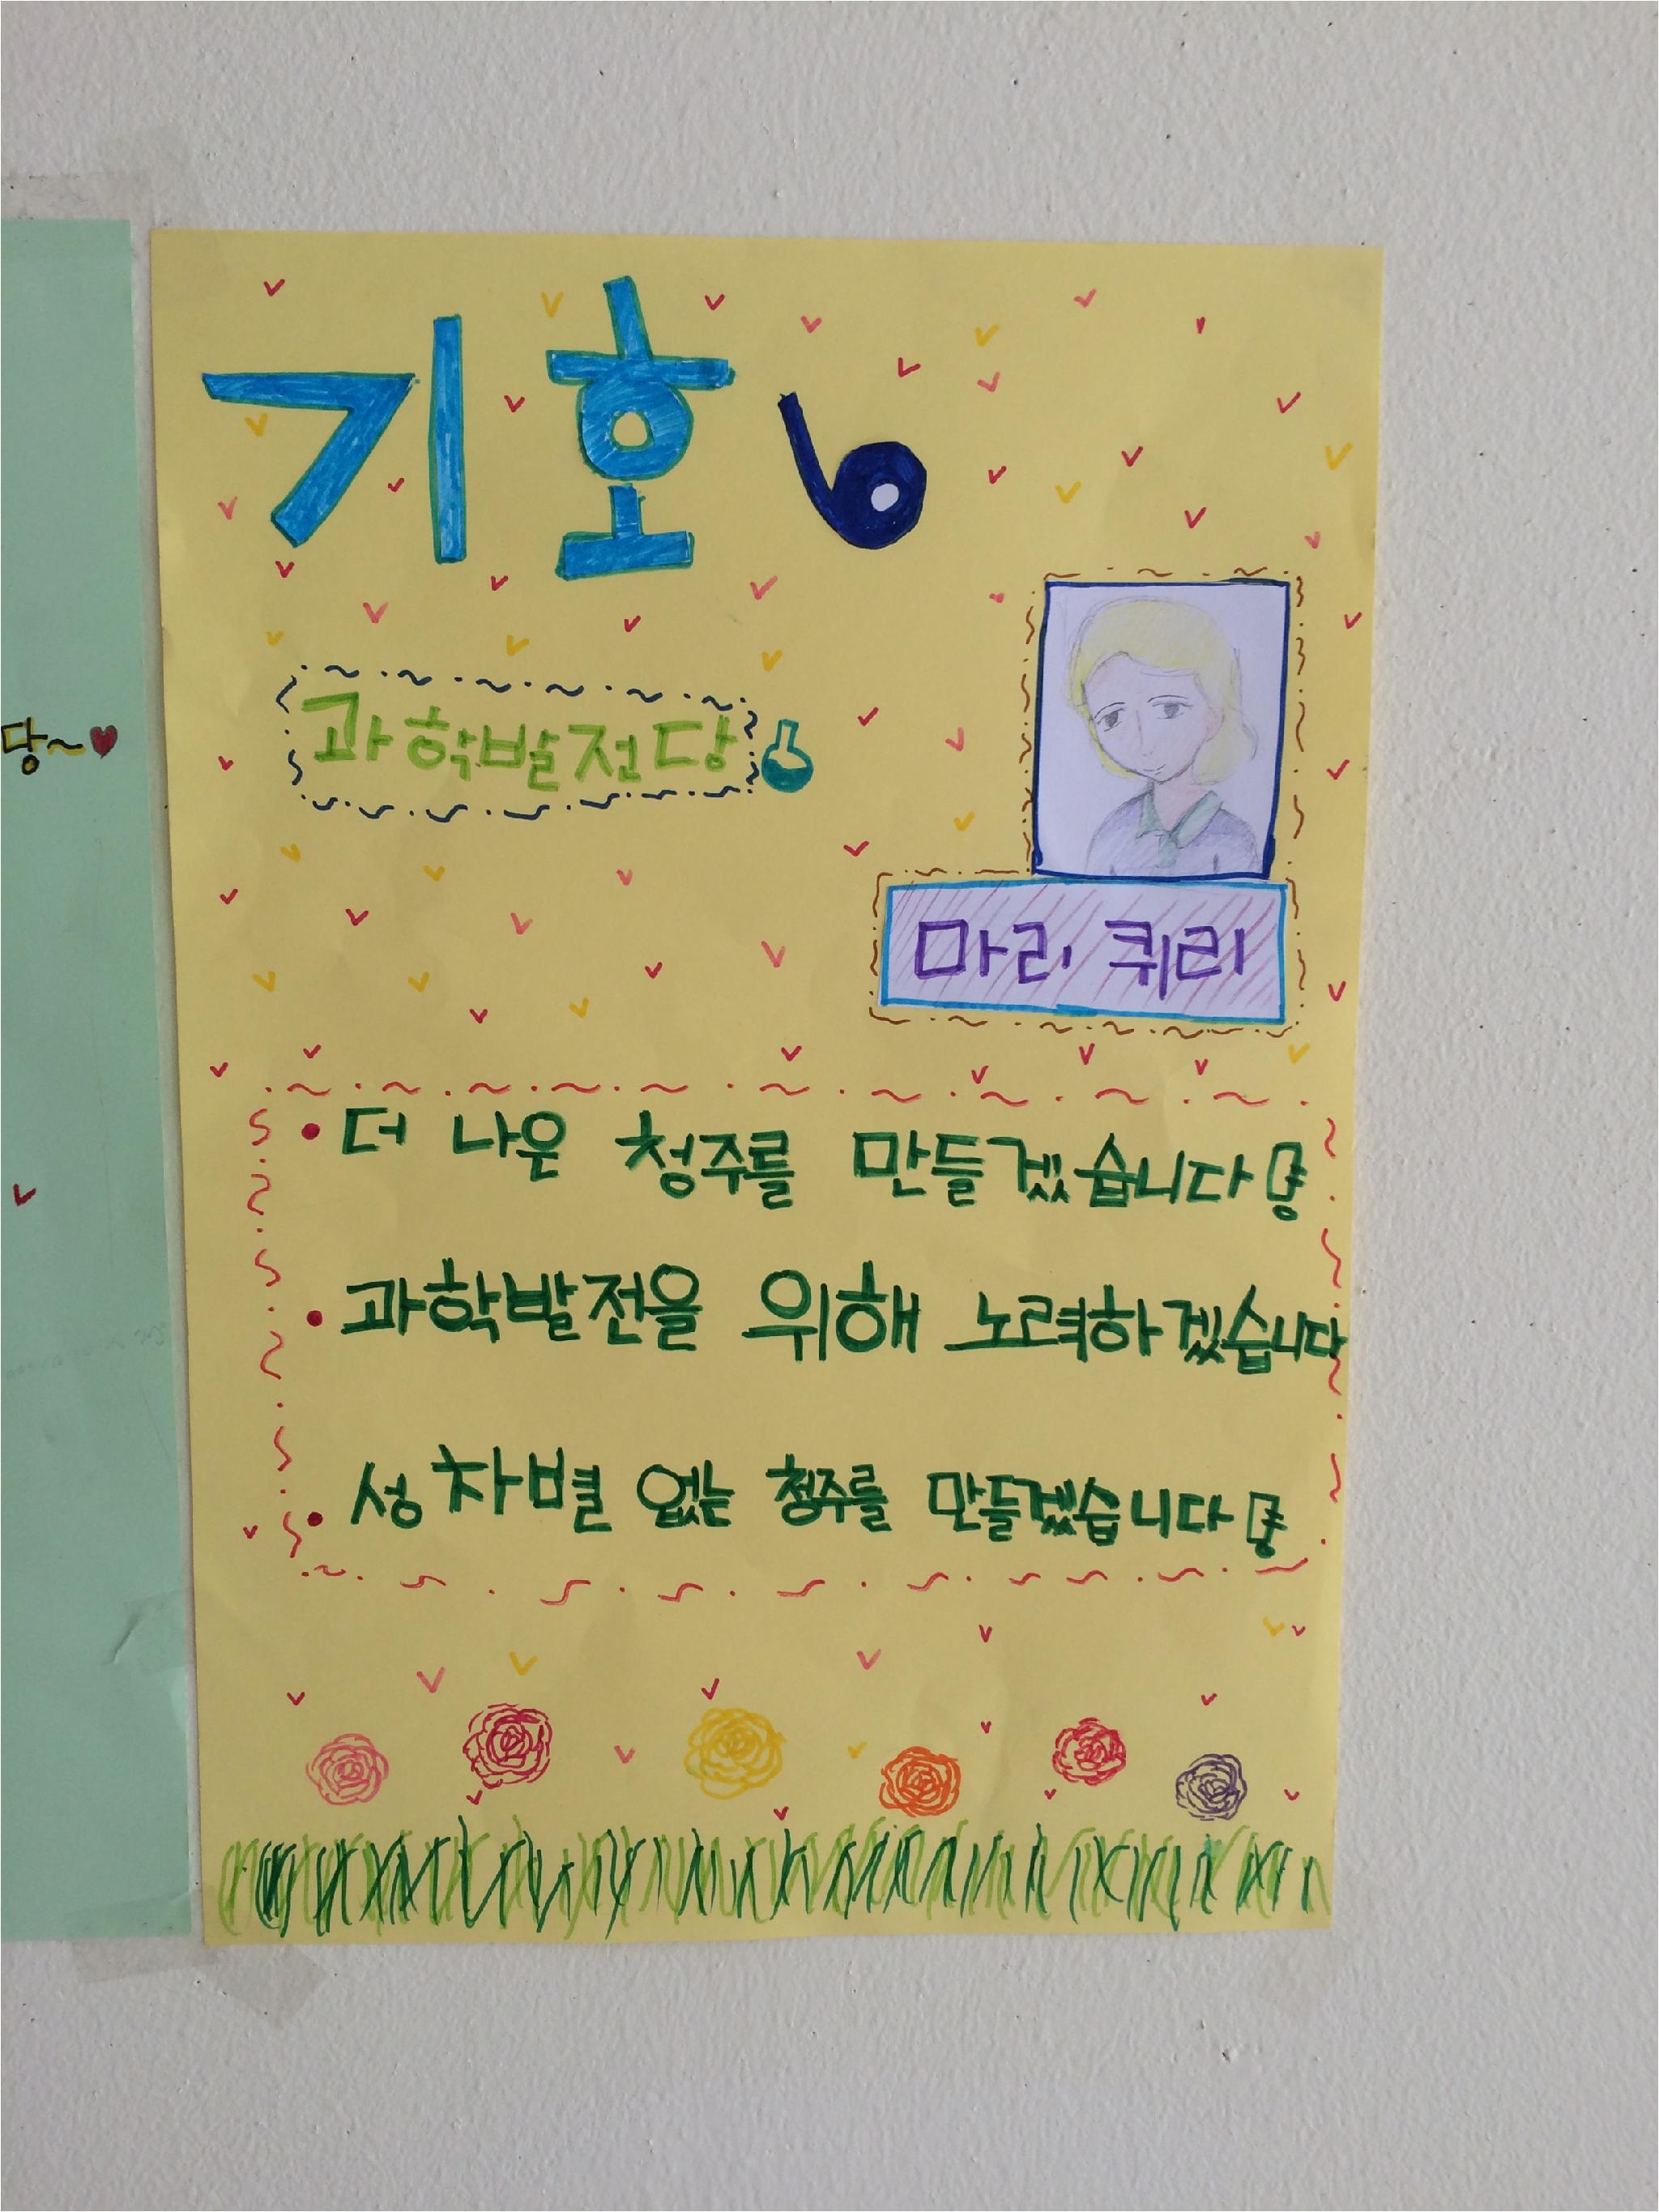 기호 6
과학발전당
마리 퀴리
당~♥
• 더 나은 청주를 만들겠습니다
• 과학발전을 위해 노력하겠습니다
• 성차별 없는 청주를 만들겠습니다